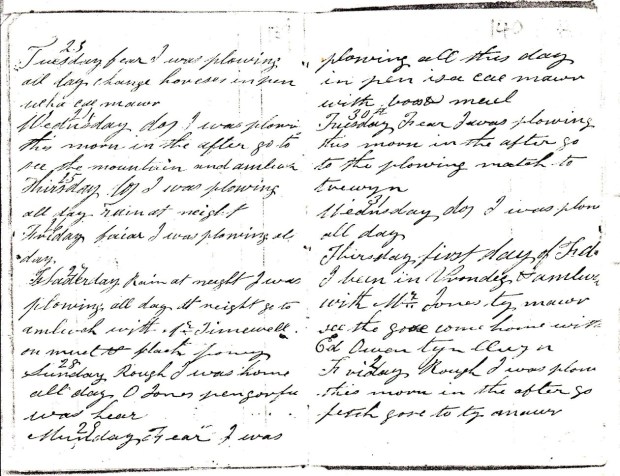 23
Tuesday fear I was plowing
all day change horeses in pen
ucha cae mawr
24
Wednsday dog I was plowin
this morn in the after go to
see the mountain and amluch
25
Thirsday fog I was plowing
all day rain at neight
Friday faiar I was plowing al
day
27
Satterday Rain at neight I was
plowing all day at neight go to
amlwch with Mr Timewell
on muel & plack poney
28
Sunday Rough I was home
all day O Jones pengorfu
was hear
29
Munday Fear I was
140
plowing all this day
in pen isa cae mawr
with muel
30th
Tuesday Fear I was plowing
this morn in the after go
to the plowing match to
trewyn
31
Wednesday dog I was plow
all day
Thirsday first day of Feb
I been in & amlwch
with Mr Jones ty mawr
see the gose come home with
Ed Owen tyn llwyn
2
Friday Rough I was plow
this morn in the after go
fetch gose to ty mawr